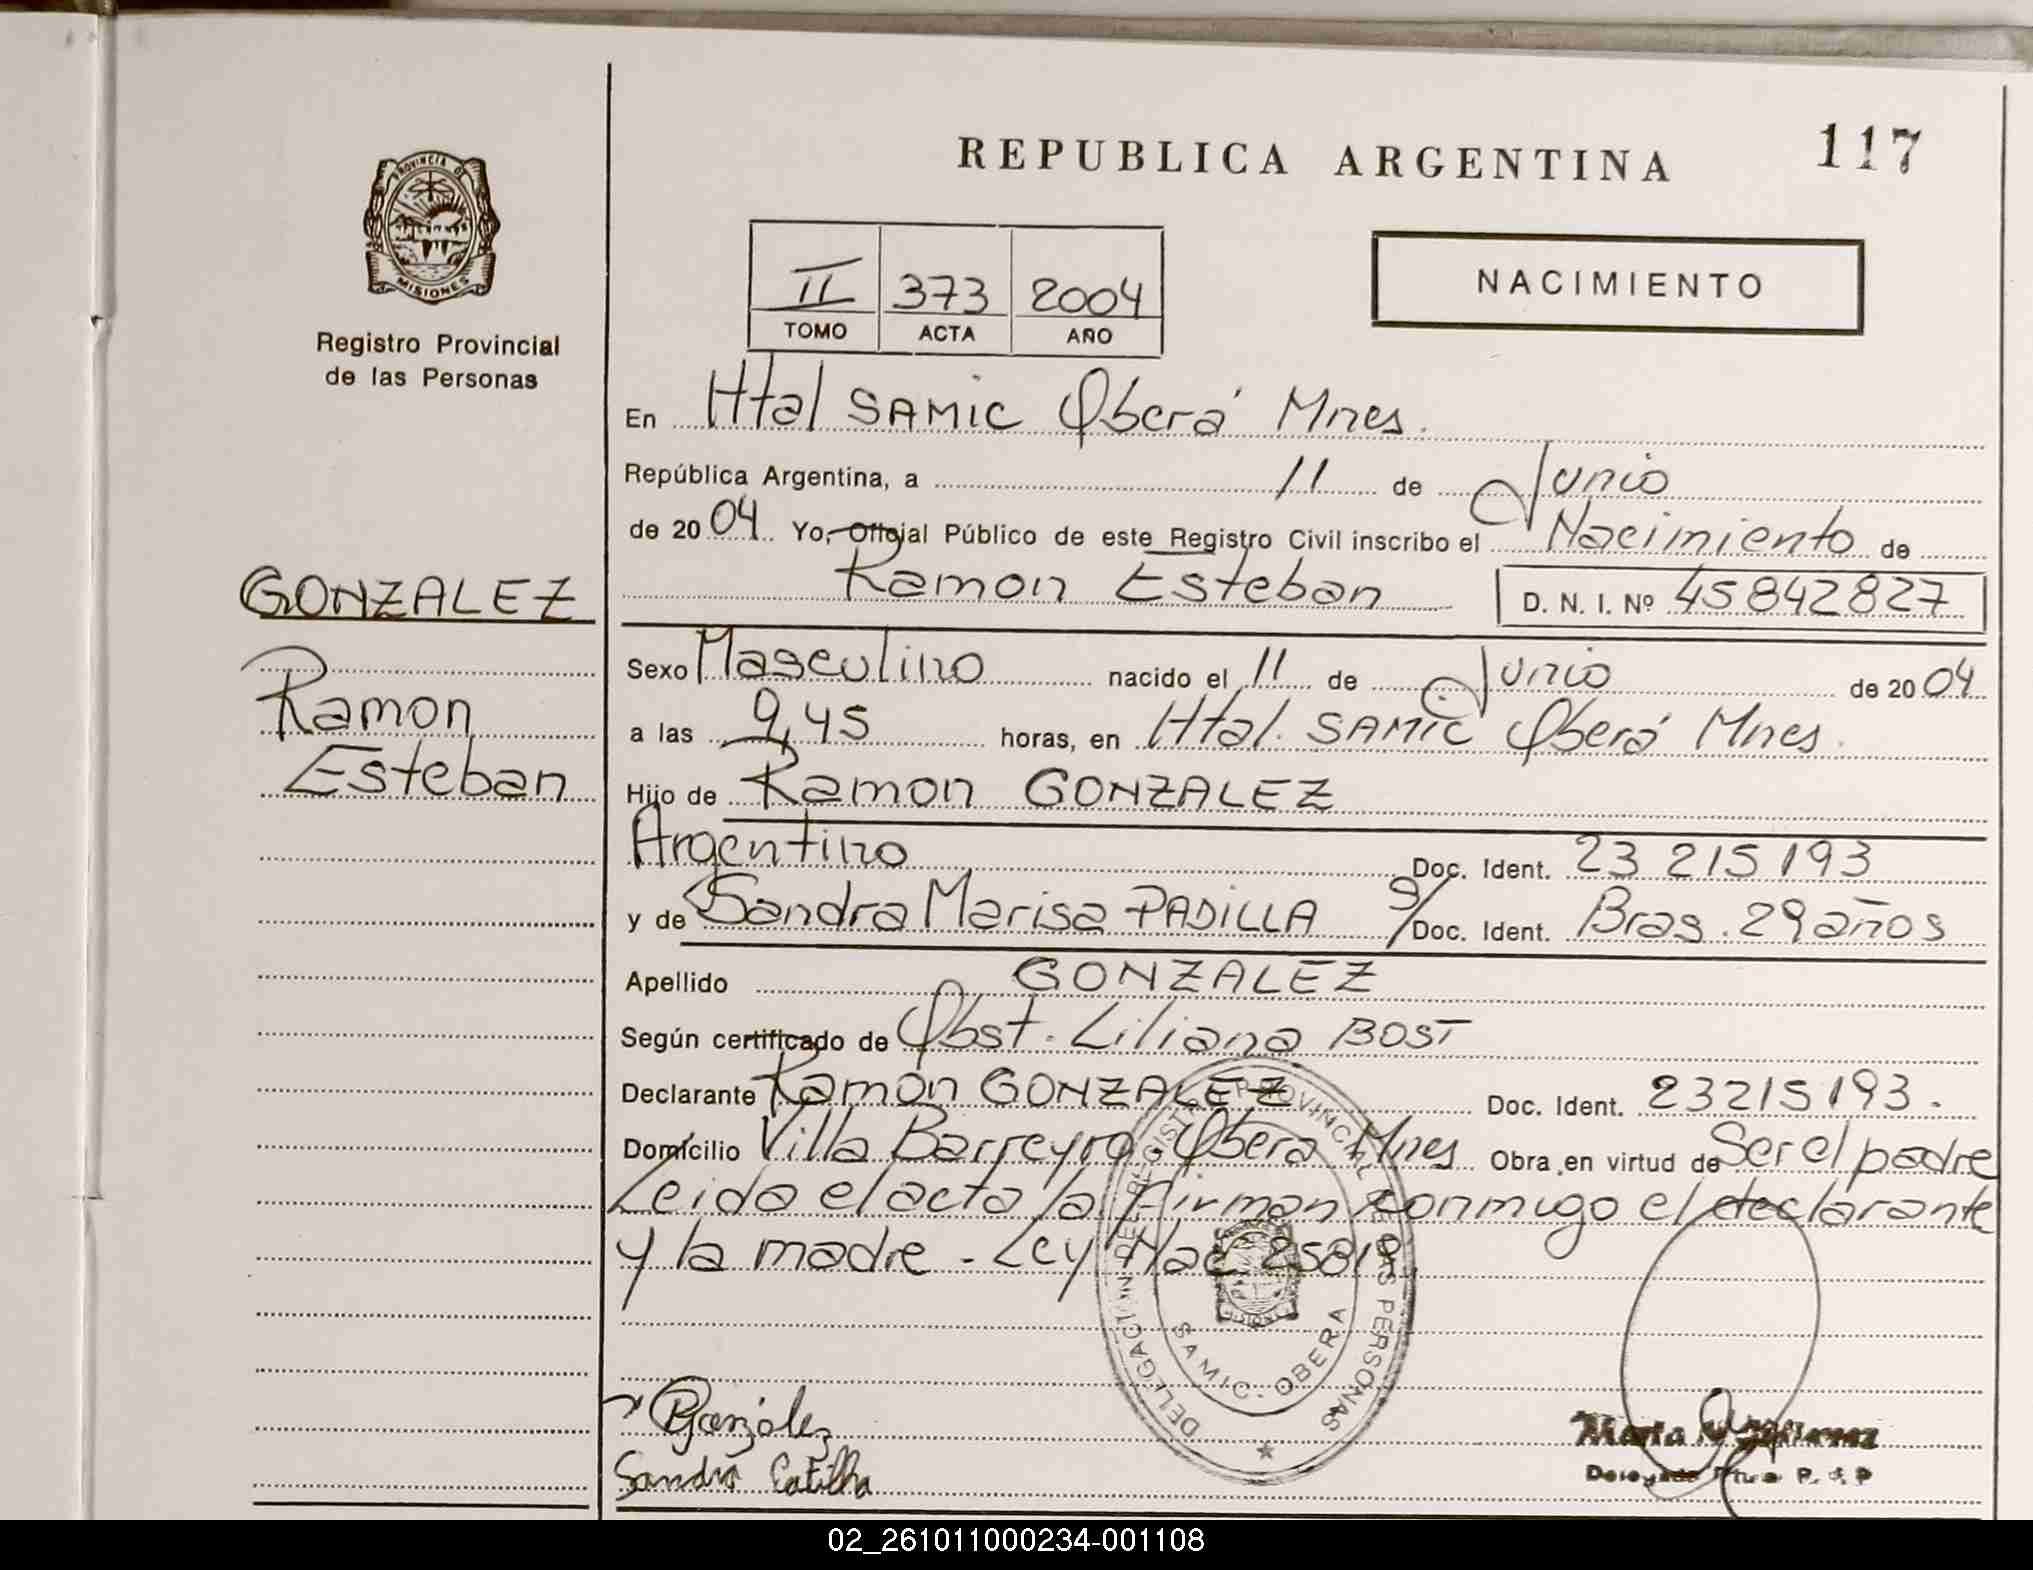 REPUBLICA ARGENTINA 117
PROVINCIA DE
MISIONES
Registro Provincial
de las Personas
NACIMIENTO
II 373 2004
TOMO ACTA AÑO
En Htal SAMIC Oberá Mnes.
República Argentina, a 11 de Junio
de 2004. Yo, Oficial Público de este Registro Civil inscribo el Nacimiento de
Ramon Esteban D. N. I. Nº 45842827
GONZALEZ
Ramon
Esteban
Sexo Masculino nacido el 11 de Junio de 2004
a las 9,45 horas, en Htal. SAMIC Oberá Mnes.
Hijo de Ramon GONZALEZ
Argentino Doc. Ident. 23 215 193
y de Sandra Marisa PADILLA S/Doc. Ident. Bras. 29 años
Apellido GONZALEZ
Según certificado de Obst. Liliana BOST
Declarante Ramón GONZALEZ Doc. Ident. 23215193.
Domicilio Villa Barreyro. Obera Mnes Obra en virtud de Ser el padre
Leida el acta la firman conmigo el declarante
y la madre - Ley Nac 25819
DELEGACION DEL REGISTRO PROVINCIAL DE LAS PERSONAS
SAMIC - OBERA
RGonzález
Sandra
02_261011000234-001108